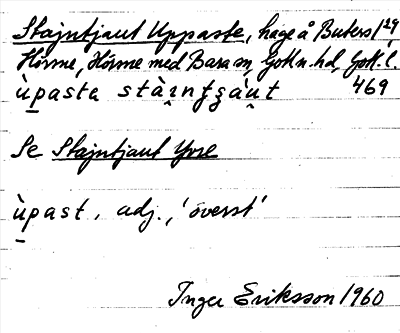 Stajntjaut Uppaste, hage å Buters 1 29
Hörsne, Hörsne med Bara sn, Gotl. n. hd, Gotl. l.
ùpasta stàɪnţşáut 469
Se Stajntjaut Yvre
ùpast, adj., 'överst'
Inger Eriksson 1960